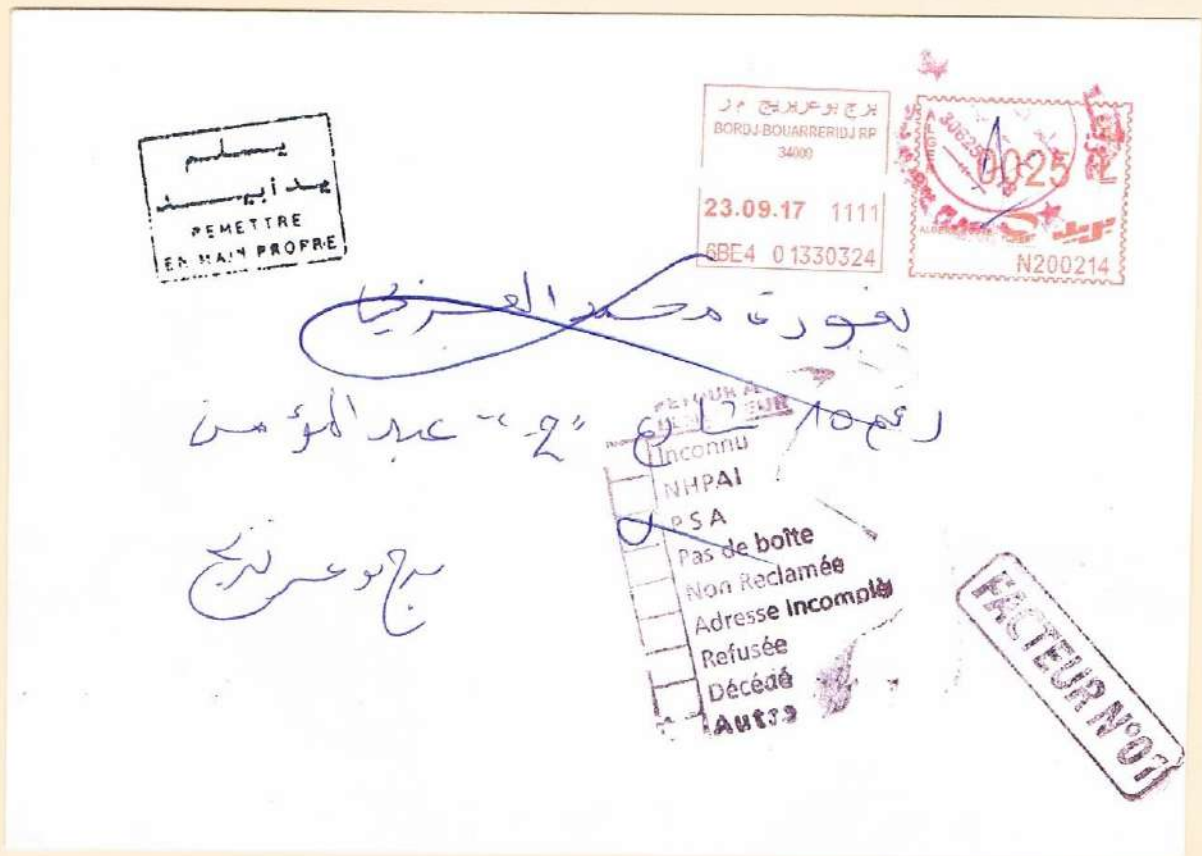 يسلم
يدا بيد
REMETTRE
EN MAIN PROPRE
برج بوعريريج م ر
BORDJ-BOUARRERIDJ RP
34000
23.09.17 1111
6BE4 01330324
0025
N200214
محمد
رقم شارع "ج" عبد المؤمن
برج بوعريريج
RETOUR A
Inconnu
NHPAI
PSA
Pas de boîte
Non Reclamée
Adresse Incomplè
Refusée
Décédé
Autre
FACTEUR N°01